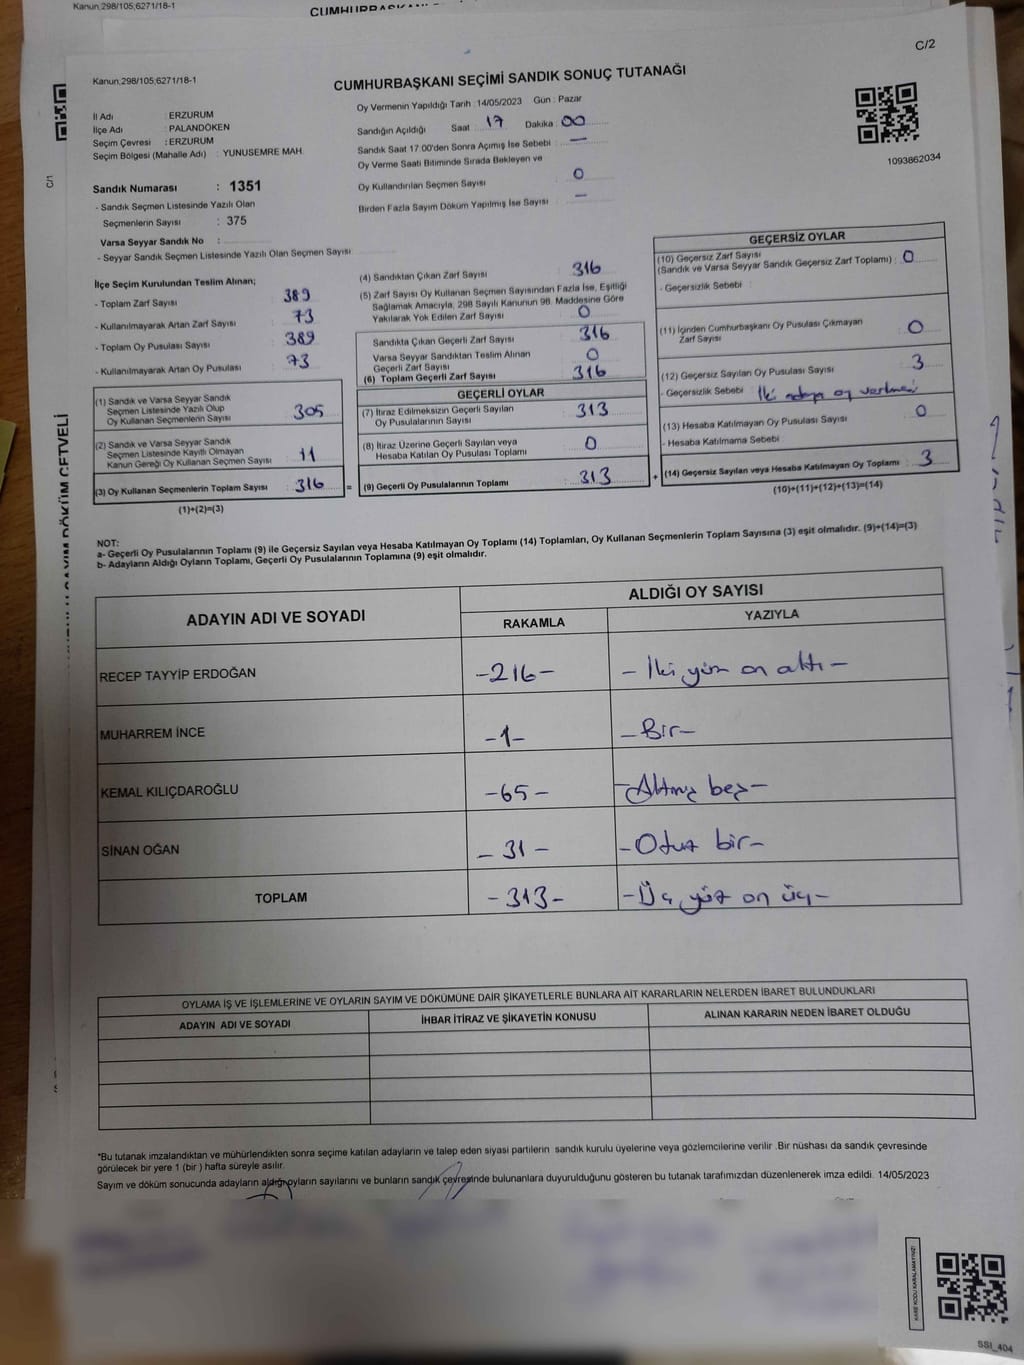 Kanun;298/105;6271/18-1
CUMHURBAŞKANI
C/2
Kanun;298/105;6271/18-1
CUMHURBAŞKANI SEÇİMİ SANDIK SONUÇ TUTANAĞI
İl Adı : ERZURUM
İlçe Adı : PALANDÖKEN
Seçim Çevresi : ERZURUM
Seçim Bölgesi (Mahalle Adı) : YUNUSEMRE MAH.
Sandık Numarası : 1351
- Sandık Seçmen Listesinde Yazılı Olan
Seçmenlerin Sayısı : 375
Varsa Seyyar Sandık No :
- Seyyar Sandık Seçmen Listesinde Yazılı Olan Seçmen Sayısı
Oy Vermenin Yapıldığı Tarih : 14/05/2023 Gün : Pazar
Sandığın Açıldığı Saat 17 Dakika : 00
Sandık Saat 17:00'den Sonra Açımış İse Sebebi : —
Oy Verme Saati Bitiminde Sırada Bekleyen ve
Oy Kullandırılan Seçmen Sayısı : 0
Birden Fazla Sayım Döküm Yapılmış İse Sayısı : —
1093862034
C/1
İlçe Seçim Kurulundan Teslim Alınan;
- Toplam Zarf Sayısı : 389
- Kullanılmayarak Artan Zarf Sayısı : 73
- Toplam Oy Pusulası Sayısı : 389
- Kullanılmayarak Artan Oy Pusulası : 73
(1) Sandık ve Varsa Seyyar Sandık
Seçmen Listesinde Yazılı Olup
Oy Kullanan Seçmenlerin Sayısı : 305
(2) Sandık ve Varsa Seyyar Sandık
Seçmen Listesinde Kayıtlı Olmayan
Kanun Gereği Oy Kullanan Seçmen Sayısı : 11
(3) Oy Kullanan Seçmenlerin Toplam Sayısı : 316 =
(1)+(2)=(3)
(4) Sandıktan Çıkan Zarf Sayısı : 316
(5) Zarf Sayısı Oy Kullanan Seçmen Sayısından Fazla İse, Eşitliği
Sağlamak Amacıyla, 298 Sayılı Kanunun 98. Maddesine Göre
Yakılarak Yok Edilen Zarf Sayısı : 0
Sandıkta Çıkan Geçerli Zarf Sayısı : 316
Varsa Seyyar Sandıktan Teslim Alınan
Geçerli Zarf Sayısı : 0
(6) Toplam Geçerli Zarf Sayısı : 316
GEÇERLİ OYLAR
(7) İtiraz Edilmeksizin Geçerli Sayılan
Oy Pusulalarının Sayısı : 313
(8) İtiraz Üzerine Geçerli Sayılan veya
Hesaba Katılan Oy Pusulası Toplamı : 0
(9) Geçerli Oy Pusulalarının Toplamı : 313 +
GEÇERSİZ OYLAR
(10) Geçersiz Zarf Sayısı
(Sandık ve Varsa Seyyar Sandık Geçersiz Zarf Toplamı) : 0
- Geçersizlik Sebebi :
(11) İçinden Cumhurbaşkanı Oy Pusulası Çıkmayan
Zarf Sayısı : 0
(12) Geçersiz Sayılan Oy Pusulası Sayısı : 3
- Geçersizlik Sebebi : İki adaya oy verilmesi
(13) Hesaba Katılmayan Oy Pusulası Sayısı : 0
- Hesaba Katılmama Sebebi
(14) Geçersiz Sayılan veya Hesaba Katılmayan Oy Toplamı : 3
(10)+(11)+(12)+(13)=(14)
NOT:
a- Geçerli Oy Pusulalarının Toplamı (9) ile Geçersiz Sayılan veya Hesaba Katılmayan Oy Toplamı (14) Toplamları, Oy Kullanan Seçmenlerin Toplam Sayısına (3) eşit olmalıdır. (9)+(14)=(3)
b- Adayların Aldığı Oyların Toplamı, Geçerli Oy Pusulalarının Toplamına (9) eşit olmalıdır.
ADAYIN ADI VE SOYADI
ALDIĞI OY SAYISI
RAKAMLA YAZIYLA
RECEP TAYYİP ERDOĞAN -216- - İki yüz on altı -
MUHARREM İNCE -1- - Bir -
KEMAL KILIÇDAROĞLU -65- - Altmış beş -
SİNAN OĞAN - 31 - - Otuz bir -
TOPLAM -313- - Üç yüz on üç -
OYLAMA İŞ VE İŞLEMLERİNE VE OYLARIN SAYIM VE DÖKÜMÜNE DAİR ŞİKAYETLERLE BUNLARA AİT KARARLARIN NELERDEN İBARET BULUNDUKLARI
ADAYIN ADI VE SOYADI İHBAR İTİRAZ VE ŞİKAYETİN KONUSU ALINAN KARARIN NEDEN İBARET OLDUĞU
*Bu tutanak imzalandıktan ve mühürlendikten sonra seçime katılan adayların ve talep eden siyasi partilerin sandık kurulu üyelerine veya gözlemcilerine verilir .Bir nüshası da sandık çevresinde
görülecek bir yere 1 (bir ) hafta süreyle asılır.
Sayım ve döküm sonucunda adayların aldığı oyların sayılarını ve bunların sandık çevresinde bulunanlara duyurulduğunu gösteren bu tutanak tarafımızdan düzenlenerek imza edildi. 14/05/2023
KARE KODU KARALAMAYINIZ!
SSI_404